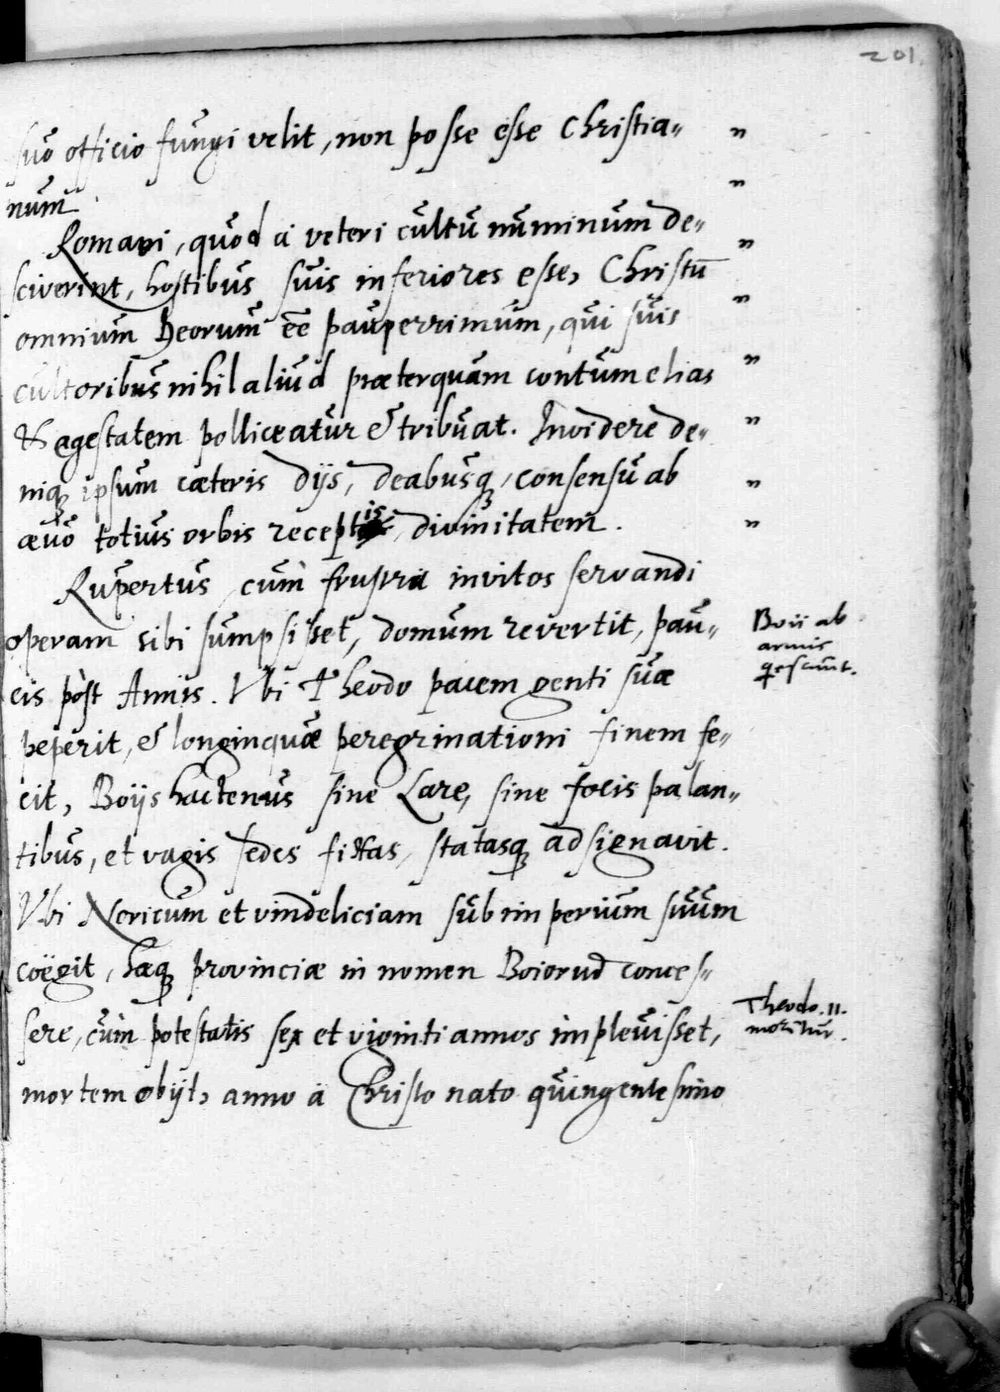 201.
suo officio fungi velit, non posse esse Christia„
num.
Romani, quod à veteri cultu numinum de„
sciverint, hostibus suis inferiores esse, Christū
omnium Deorum eē pauperrimum, qui suis
cultoribus nihil aliud præterquam contumelias
& egestatem polliceatur & tribuat. Invidere de„
niq; ipsum cæteris dijs, deabusq; consensu ab
ævo totius orbis receptis divinitatem.
Rupertus, cum frustra invitos servandi
operam sibi sumpsisset, domum revertit, pau„
cis pòst Annis. Vbi Theodo pacem genti suæ
peperit, & longinquæ peregrinationi finem fe„
cit, Boijs hactenus sine Lare, sine focis palan„
tibus, et vagis sedes fixas, statasq; adsignavit.
Vbi Noricum et vindeliciam sub imperium suum
coëgit, hæq; provinciæ in nomen Boiorum conces„
sere, cùm potestatis sex et viginti annos implevisset,
mortem obijt, anno à Christo nato quingentesimo
Boii ab
armis
qescunt.
Theodo. II.
moritur.